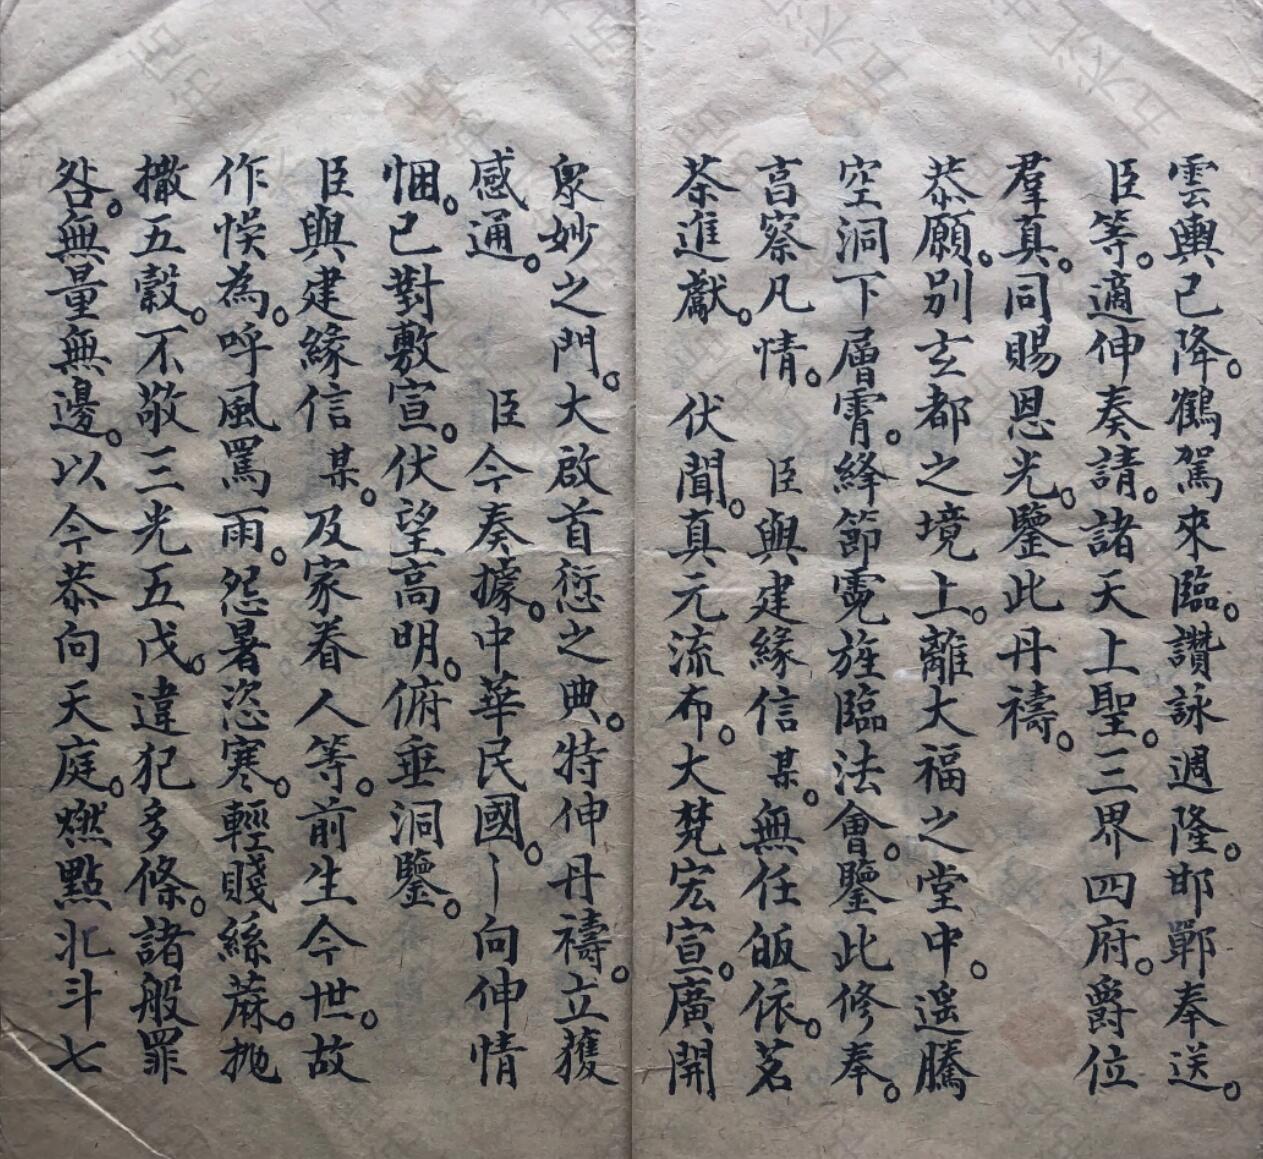 雲輿已降。鶴駕來臨。讚詠週隆。邯鄲奉送。
臣等。適伸奏請。諸天上聖。三界四府。爵位
羣真。同賜恩光。鑒此丹禱。
恭願。別玄都之境上。離大福之堂中。遥騰
空洞下層霄。絳節霓旌臨法會。鑒此修奉。
髙察凡情。臣與建緣信某。無任皈依。茗
茶進獻。伏聞。真元流布。大梵宏宣。廣開
衆妙之門。大啟首愆之典。特伸丹禱。立獲
感通。臣今奏據。中華民國。〡向伸情
悃。已對敷宣。伏望高明。俯垂洞鑒。
臣與建緣信某。及家眷人等。前生今世。故
作悞為。呼風罵雨。怨暑恣寒。輕賤絲蔴。抛
撒五穀。不敬三光五戊。違犯多條。諸般罪
咎。無量無邊。以今恭向天庭。燃點北斗七